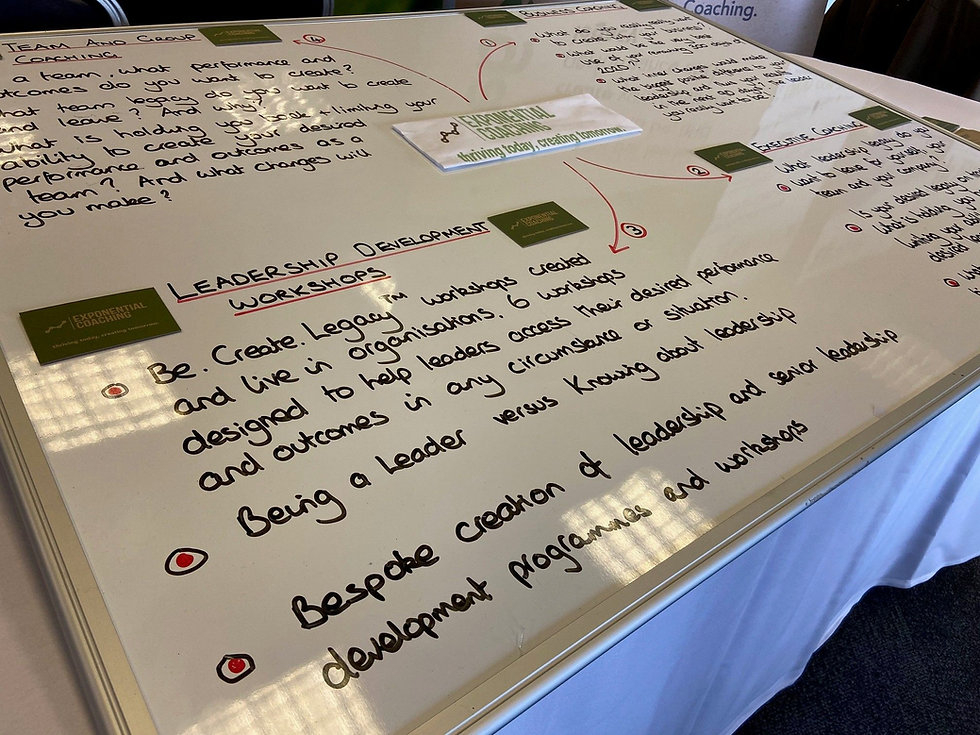 Coaching.
TEAM AND GROUP
COACHING
a team, what performance and
outcomes do you want to create?
what team legacy do you want to create
and leave? And why?
what is holding you back + limiting your
ability to create your desired
performance and outcomes as a
team? And what changes will
you make?
④
①
BUSINESS COACHING
What do you really really want
to create in your business
What would be the very best
use of the remaining 300 days
What inner changes would make
the biggest positive difference
EXPONENTIAL
COACHING
thriving today, creating tomorrow.
②
EXECUTIVE COACHING
What leadership legacy do you
want to leave for yourself, your
team and your company?
Is your desired legacy
What is holding you
limiting your
desired
③
LEADERSHIP DEVELOPMENT
WORKSHOPS
EXPONENTIAL
COACHING
EXPONENTIAL
COACHING
thriving today, creating tomorrow.
Be. Create. Legacy™ workshops created
and live in organisations. 6 workshops
designed to help leaders access their desired performance
and outcomes in any circumstance or situation.
Being a Leader versus Knowing about leadership
Bespoke creation of leadership and senior leadership
development programmes and workshops